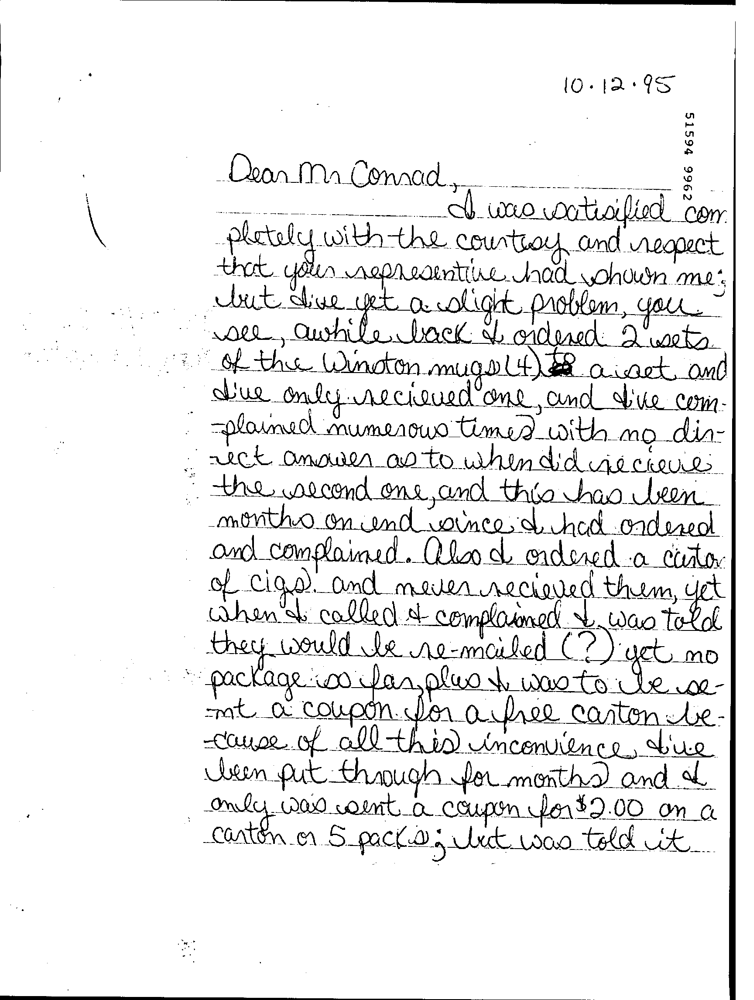 10·12·95
51594 9962
Dear Mr Conrad,
I was satisified com
pletely with the courtesy and respect
that your representive had shown me;
but I've yet a slight problem, you
see, awhile back I ordered 2 sets
of the Winston mugs (4) a set and
I've only recieved one, and I've com-
-plained numerous times with no dir-
-rect answer as to when did recieve
the second one, and this has been
months on end since I had ordered
and complained. Also I ordered a carton
of cigs. and never recieved them, yet
when I called & complained I was told
they would be re-mailed (?) yet no
package so far, plus I was to be se-
-nt a coupon for a free carton be-
-cause of all this inconvience I've
been put through for months and I
only was sent a coupon for $2.00 on a
carton or 5 packs; but was told it